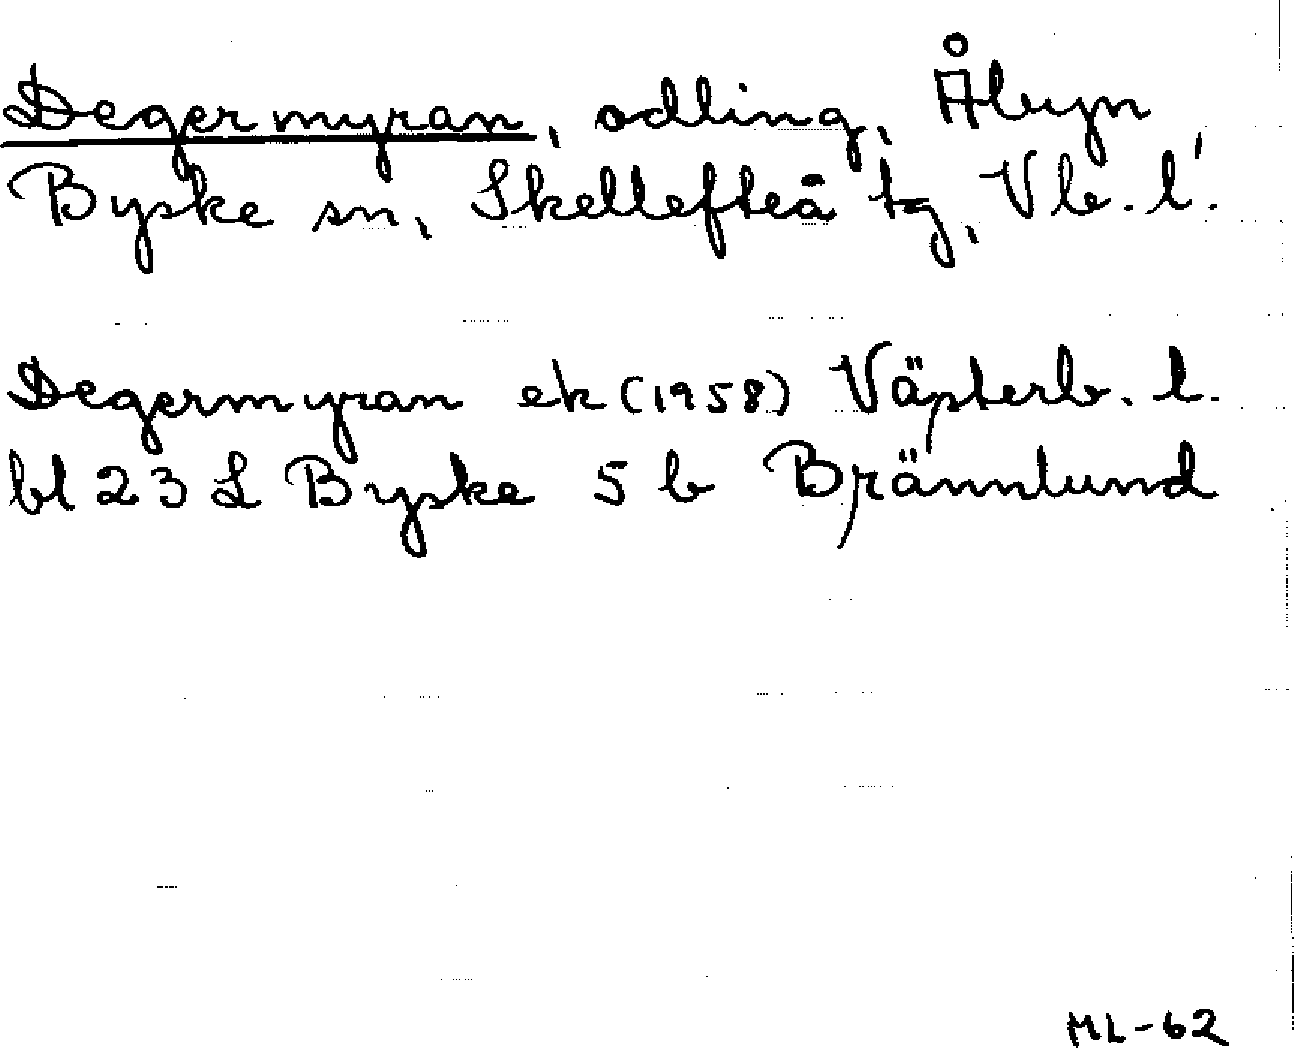 Degermyran, odling, Åbyn,
Byske sn, Skellefteå tg, Vb. l.
Degermyran ek (1958) Västerb. l.
bl 23 L Byske 5 b Brännlund
ML-62